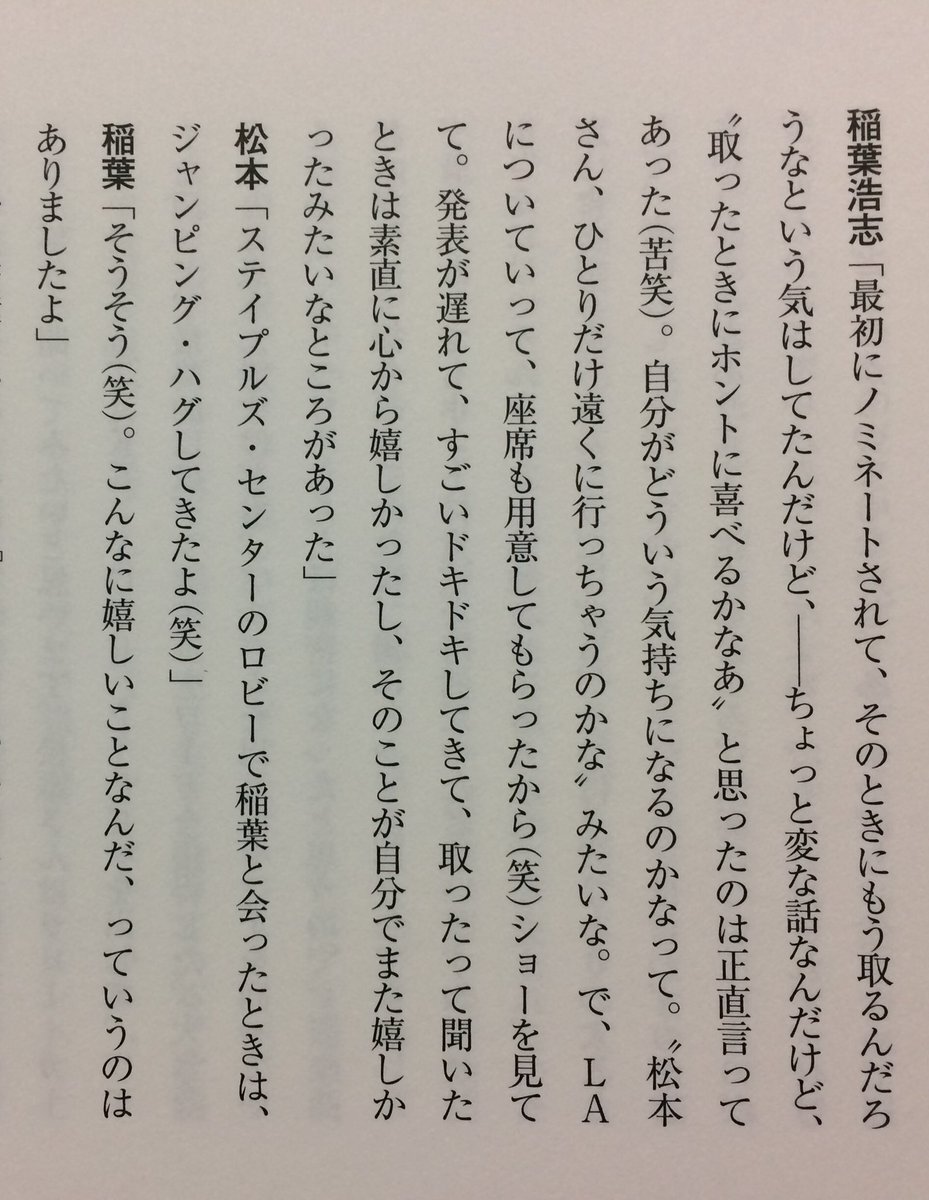 稲葉浩志「最初にノミネートされて、そのときにもう取るんだろ
うなという気はしてたんだけど、――ちょっと変な話なんだけど、
〝取ったときにホントに喜べるかなあ〟と思ったのは正直言って
あった(苦笑)。自分がどういう気持ちになるのかなって。〝松本
さん、ひとりだけ遠くに行っちゃうのかな〟みたいな。で、LA
についていって、座席も用意してもらったから(笑)ショーを見て
て。発表が遅れて、すごいドキドキしてきて、取ったって聞いた
ときは素直に心から嬉しかったし、そのことが自分でまた嬉しか
ったみたいなところがあった」
松本「ステイプルズ・センターのロビーで稲葉と会ったときは、
ジャンピング・ハグしてきたよ(笑)」
稲葉「そうそう(笑)。こんなに嬉しいことなんだ、っていうのは
ありましたよ」